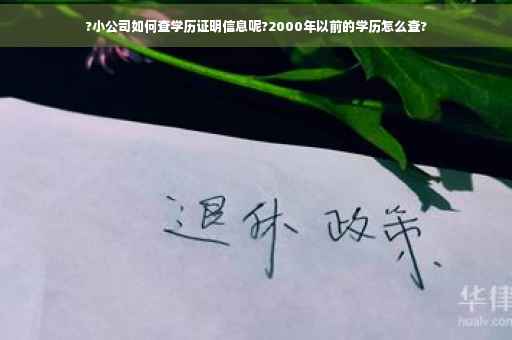 ?小公司如何查学历证明信息呢?2000年以前的学历怎么查?
退休 政策
华律
hualv.com